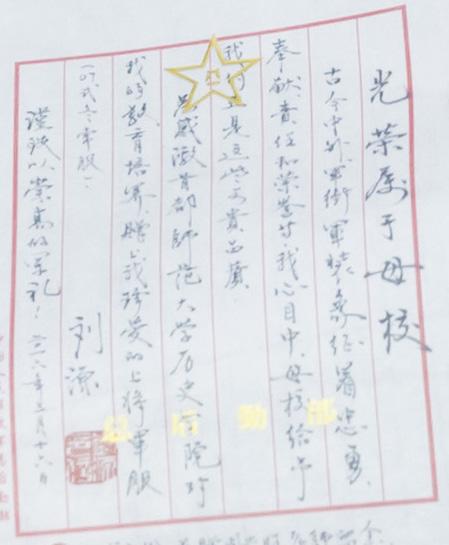 光荣属于母校
古今中外,军衔军装象征着忠勇、
奉献责任和荣誉。在我心目中,母校给予
我的正是这些宝贵品质。
为感激首都師范大学历史学院对
我的教育培养,赠上我珍爱的上将军服
(07式冬军服)。
谨致以崇高的军礼!
刘源
二〇一六年三月十六日
总后勤部